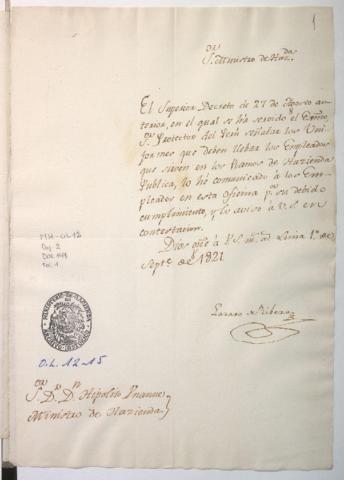 1
S.or Ministro de Haz.da
El Superior Decreto de 27 de Agosto an-
terior, en el qual se ha servido el Exmo.
S.or Protector del Perú señalar los Uni-
formes que deben llebar los Empleados
que sirven en los Ramos de Hazienda
Publica, lo hé comunicado á los Em-
pleados en esta oficina p.a su debido
cumplimiento, y lo aviso á V.S. en
contestacion.
Dios gu.e á V.S. m.s a.s Lima 1.º de
Sept.e de 1821
MH-OL 12
Caj. 2
Doc.
Fol. 1
MINISTERIO DE HACIENDA
ARCHIVO HISTORICO
O.L. 12-15
S.or D.r D.n Hipolito Unanue
Ministro de Hazienda.